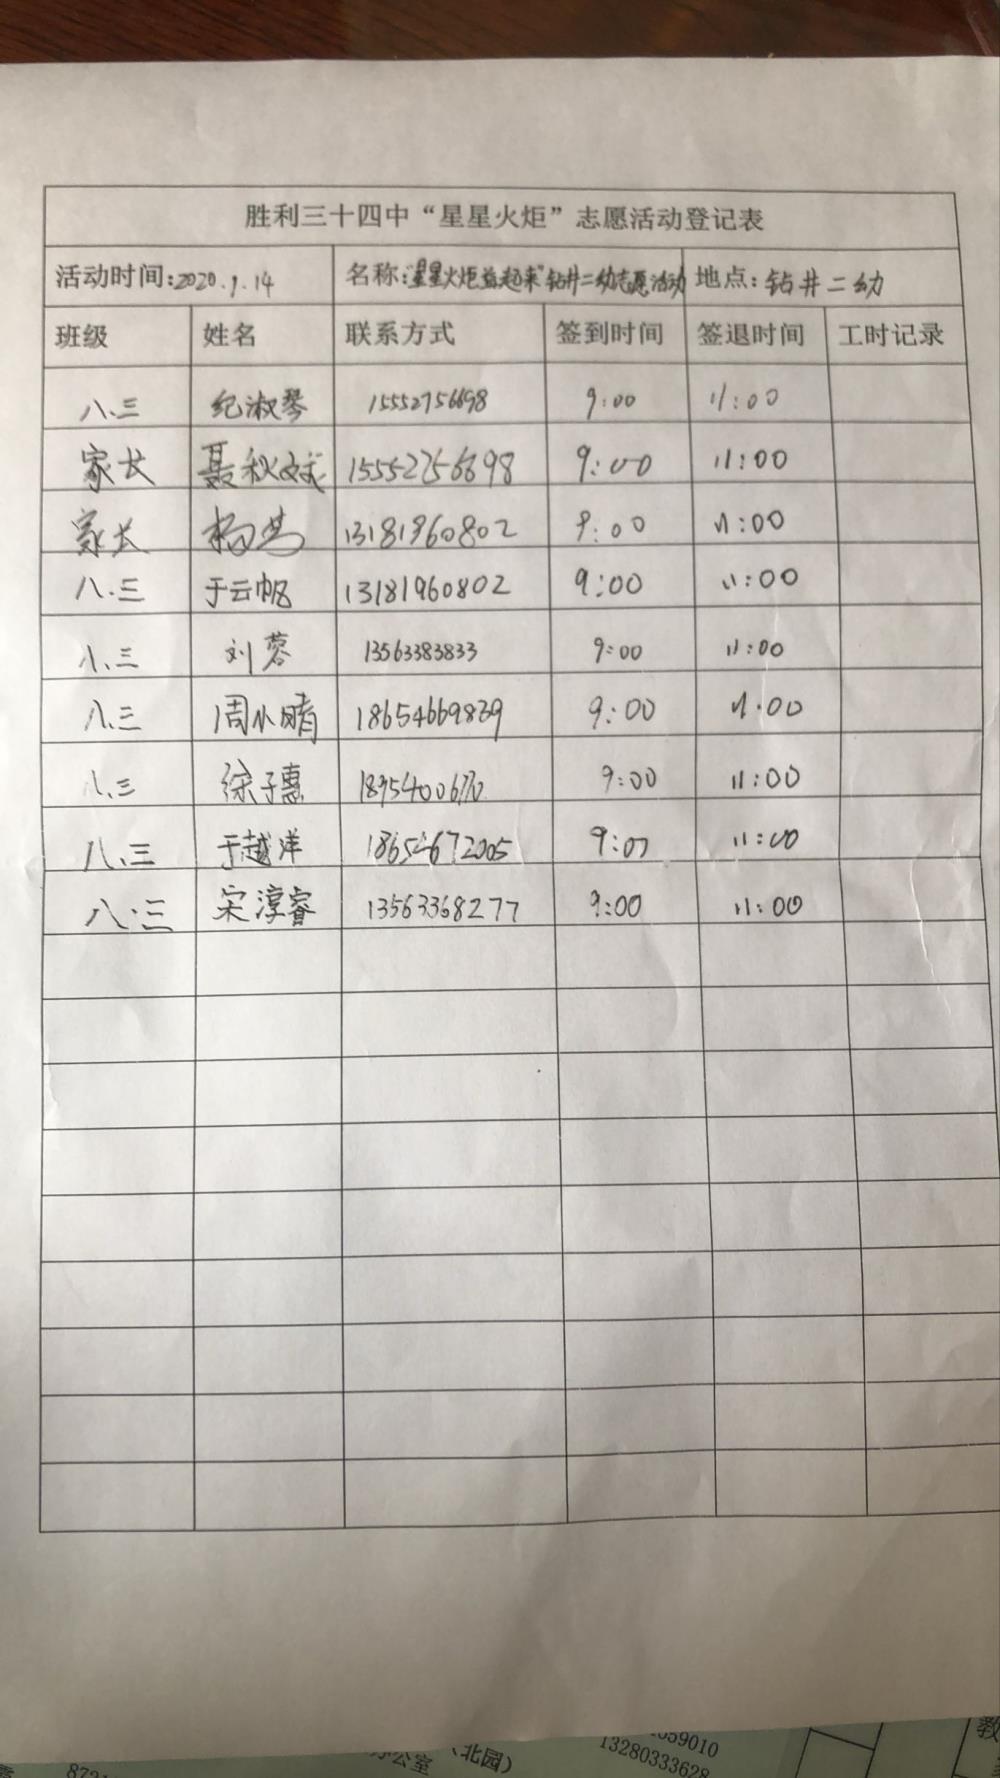 胜利三十四中“星星火炬”志愿活动登记表
活动时间:2020.1.14 名称:“星星火炬益起来”钻井二幼志愿活动 地点:钻井二幼
班级 姓名 联系方式 签到时间 签退时间 工时记录
八.三 纪淑琴 15552756698 9:00 11:00
家长 聂秋斌 15552756698 9:00 11:00
家长 13181960802 9:00 11:00
八.三 于云帆 13181960802 9:00 11:00
八.三 刘蓉 13563383833 9:00 11:00
八.三 周小晴 18654669839 9:00 11:00
八.三 徐子惠 18954006770 9:00 11:00
八.三 于越洋 18654672005 9:00 11:00
八.三 宋淳睿 13563368277 9:00 11:00
公室 (北园)
59010
13280333628
教